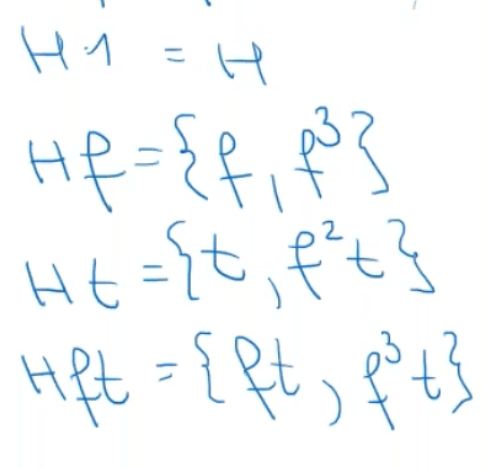 H·1 = H
Hf = {f, f³}
Ht = {t, f²t}
Hft = {ft, f³t}